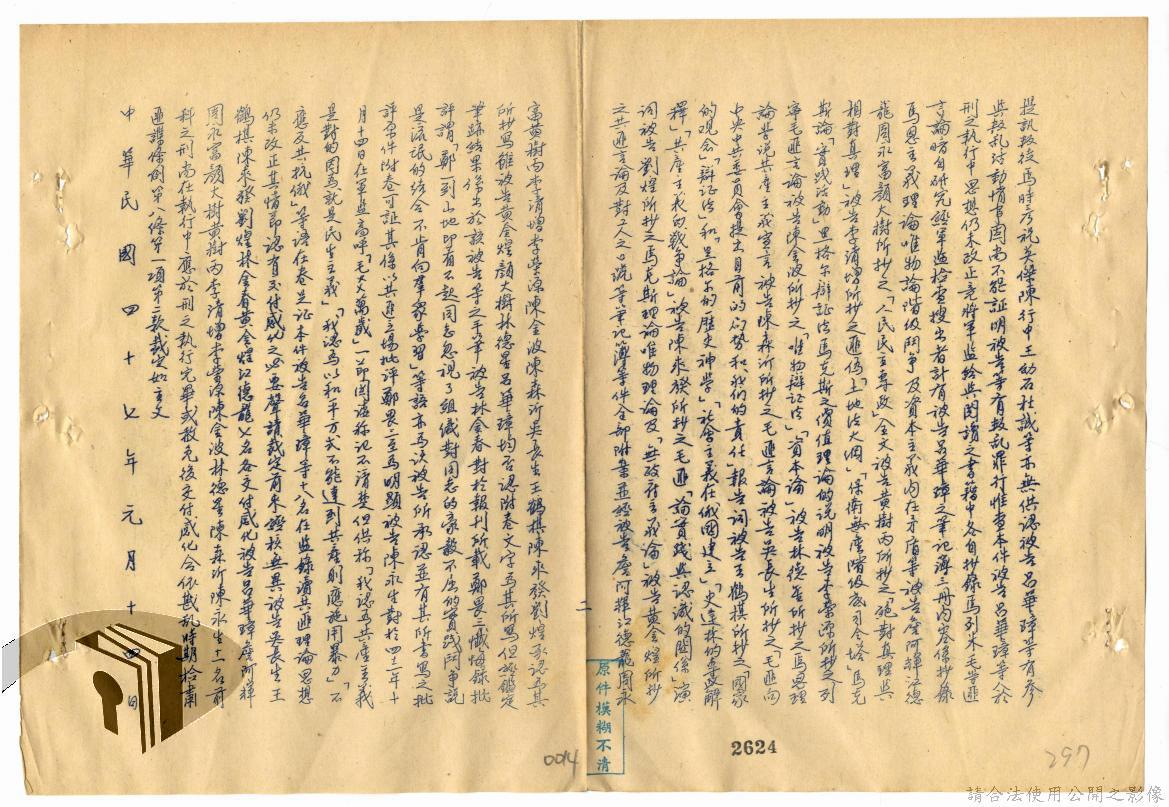 投訊叛後馬時彥祝英傑陳行中王幼石杜誠等亦無供認被告呂華璋等有參
與叛乱活動情事固尚不能証明被告等有叛乱罪行惟查本件被告呂華璋等人於
刑之執行中思想仍未改正竟將軍監給與閱讀之書籍中各自抄錄馬列米毛等匪
言論暗自研究經軍監檢查搜出者計有被告呂華璋之筆記簿三冊內容係抄錄
馬恩主義理論唯物論階級鬥爭及資本主義內在矛盾等被告詹阿輝江德
龍周永富顏大樹所抄之「人民民主專政」全文被告黃樹丙所抄之「絕對真理與
相對真理」被告李清增所抄之匪偽「土地法大綱」「保衛無產階級底司令塔」馬克
斯論「實踐活動」黑格尔辯証法馬克斯之價值理論的說明被告李榮源所抄之列
寧毛匪言論被告陳金波所抄之「唯物辯証法」「資本論」被告林德星所抄之馬恩理
論學說共產主義宣言被告陳森沂所抄之毛匪言論被告吳長生所抄之「毛匪向
中央中共委員會提出目前的局勢和我們的責任」報告詞被告王鶴棋所抄之「國家
的观念」「辯証法」和「黑格尔的歷史神學」「社會主義在俄國建立」「史達林的憲政解
釋」「共產主義的戰爭論」被告陳來發所抄之毛匪「論實踐與認識的關係」演
詞被告劉煌所抄之馬克斯理論唯物理論及「無政府主義論」被告黃金煌所抄
之共匪言論及對工人之口號等筆記簿等件全部附案並經被告詹阿輝江德龍周永
富黃樹丙李清增李榮源陳金波陳森沂吳長生王鶴棋陳來發劉煌承認為其
所抄寫雖被告黃金煌顏大樹林德星呂華璋均否認附卷文字為其所寫但經鑑定
筆跡結果係出於該被告等之手筆被告林金春對於報刊所載鄭晏三懺悔錄批
評謂「鄭一到山地即看不起同志忽視了組織對同志的豪毅不屈的實踐鬥爭說
是流氓的結合不肯向羣眾學習」等語亦為該被告所承認並有其所書寫之批
評原件附卷可証其係以共匪立場批評鄭晏三至為明顯被告陳永生對於四三年十
月十四日在軍監高呼「毛丈人萬歲」一節固諉称記不清楚但供称「我認為共產主義
是對的因馬就是民生主義」「我認為以和平方式不能達到共產則應施用暴力」「不
應反共抗俄」等語在卷足証本件被告呂華璋等十八名在監錄讀共匪理論思想
仍未改正其情節認有交付感化之必要聲請裁定前來經核無異被告吳長生王
鶴棋陳來發劉煌林金春黃金煌江德龍七名各交付感化被告呂華璋詹阿輝
周永富顏大樹黃樹丙李清增李榮源陳金波林德星陳森沂陳永生十一名前
科之刑尚在執行中應於刑之執行完畢或赦免後交付感化合依戡乱時期檢肅
匪諜條例第八條第一項第二款裁定如主文
中華民國四十七年元月十四日
二
原件模糊不清
2624
0014
297
請合法使用公開之影像